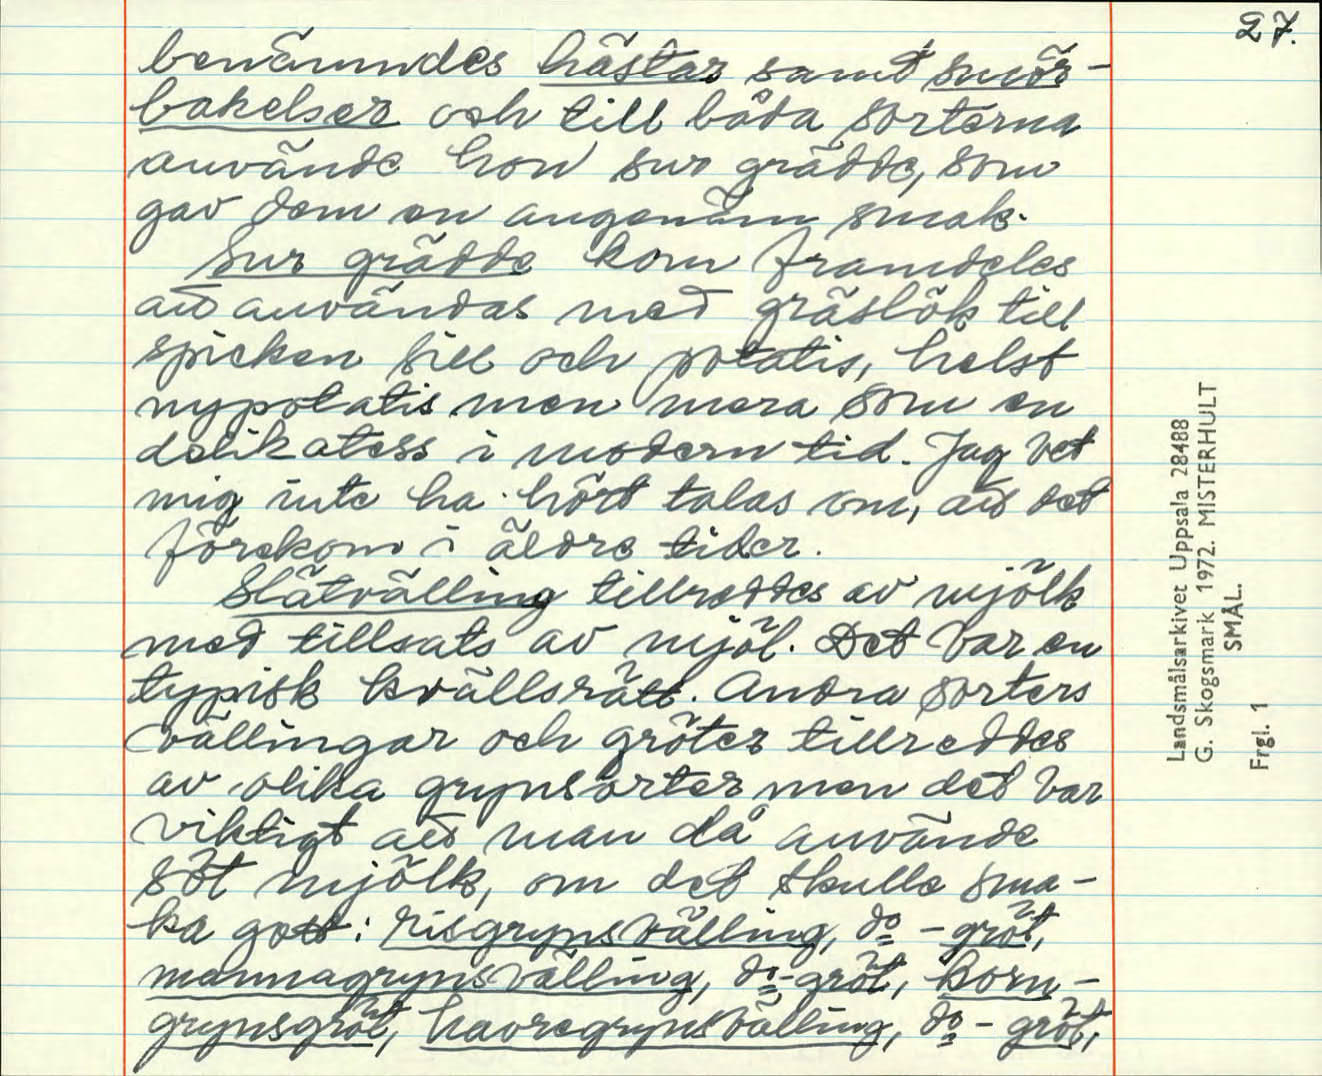 27.
benämndes hästar samt smör-
bakelser och till båda sorterna
använde hon sur grädde, som
gav dem en angenäm smak.
Sur grädde kom framdeles
att användas med gräslök till
spicken sill och potatis, helst
nypotatis men mera som en
delikatess i modern tid. Jag vet
mig inte ha hört talas om, att det
förekom i äldre tider.
Slätvälling tillreddes av mjölk
med tillsats av mjöl. Det var en
typisk kvällsrätt. Andra sorters
vällingar och gröter tillreddes
av olika grynsorter men det var
viktigt att man då använde
söt mjölk, om det skulle sma-
ka gott: risgrynsvälling, do - gröt,
mannagrynsvälling, do - gröt, korn-
grynsgröt, havregrynsvälling, do - gröt,
Landsmålsarkivet Uppsala 28488
G. Skogsmark 1972. MISTERHULT
SMÅL.
Frgl. 1